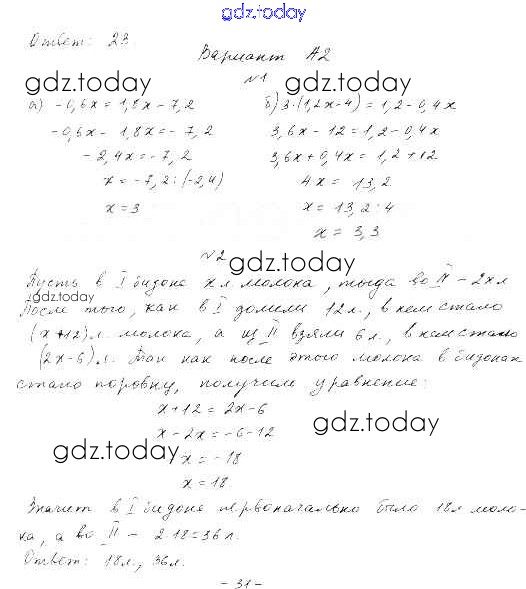 gdz.today
Ответ: 23
Вариант А2
№1
gdz.today gdz.today
а) -0,6x = 1,8x - 7,2
-0,6x - 1,8x = -7,2
-2,4x = -7,2
x = -7,2 : (-2,4)
x = 3
б) 3·(1,2x-4) = 1,2 - 0,4x
3,6x - 12 = 1,2 - 0,4x
3,6x + 0,4x = 1,2 + 12
4x = 13,2
x = 13,2 : 4
x = 3,3
№2
gdz.today
Пусть в I бидоне x л молока, тогда во II - 2x л
gdz.today
После того, как в I долили 12 л., в нем стало
(x+12) л. молока, а из II взяли 6 л., в нем стало
(2x-6) л. Так как после этого молока в бидонах
стало поровну, получим уравнение:
x + 12 = 2x - 6
x - 2x = -6 - 12
gdz.today gdz.today
x = -18
x = 18
Значит в I бидоне первоначально было 18 л моло-
ка, а во II - 2·18 = 36 л.
Ответ: 18 л., 36 л.
- 31 -